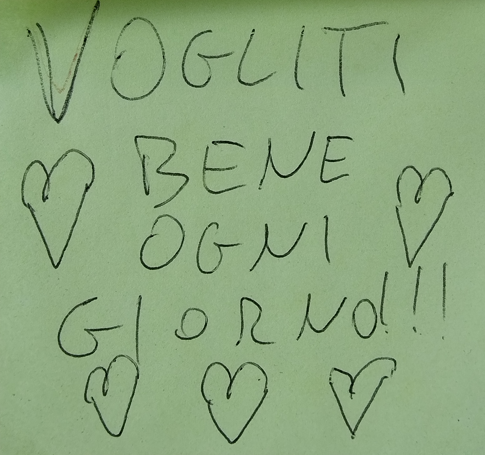 VOGLITI
BENE
OGNI
GIORNO!!!